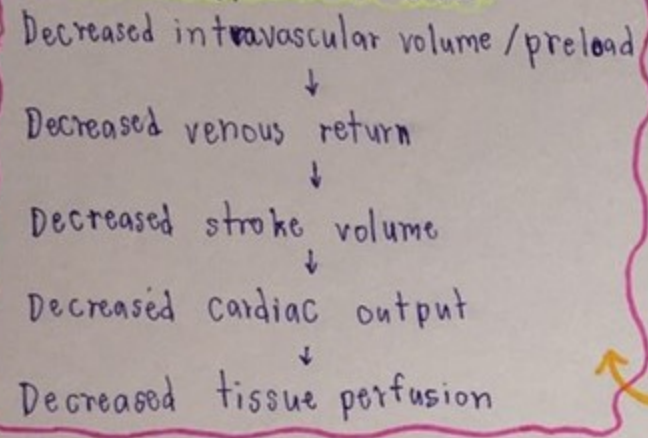 Decreased intravascular volume / preload
↓
Decreased venous return
↓
Decreased stroke volume
↓
Decreased cardiac output
↓
Decreased tissue perfusion